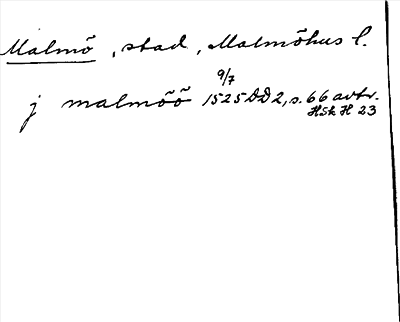 Malmö, stad, Malmöhus l.
9/7
j malmöö 1525 DD2, s. 66 avtr.
HSk H 23